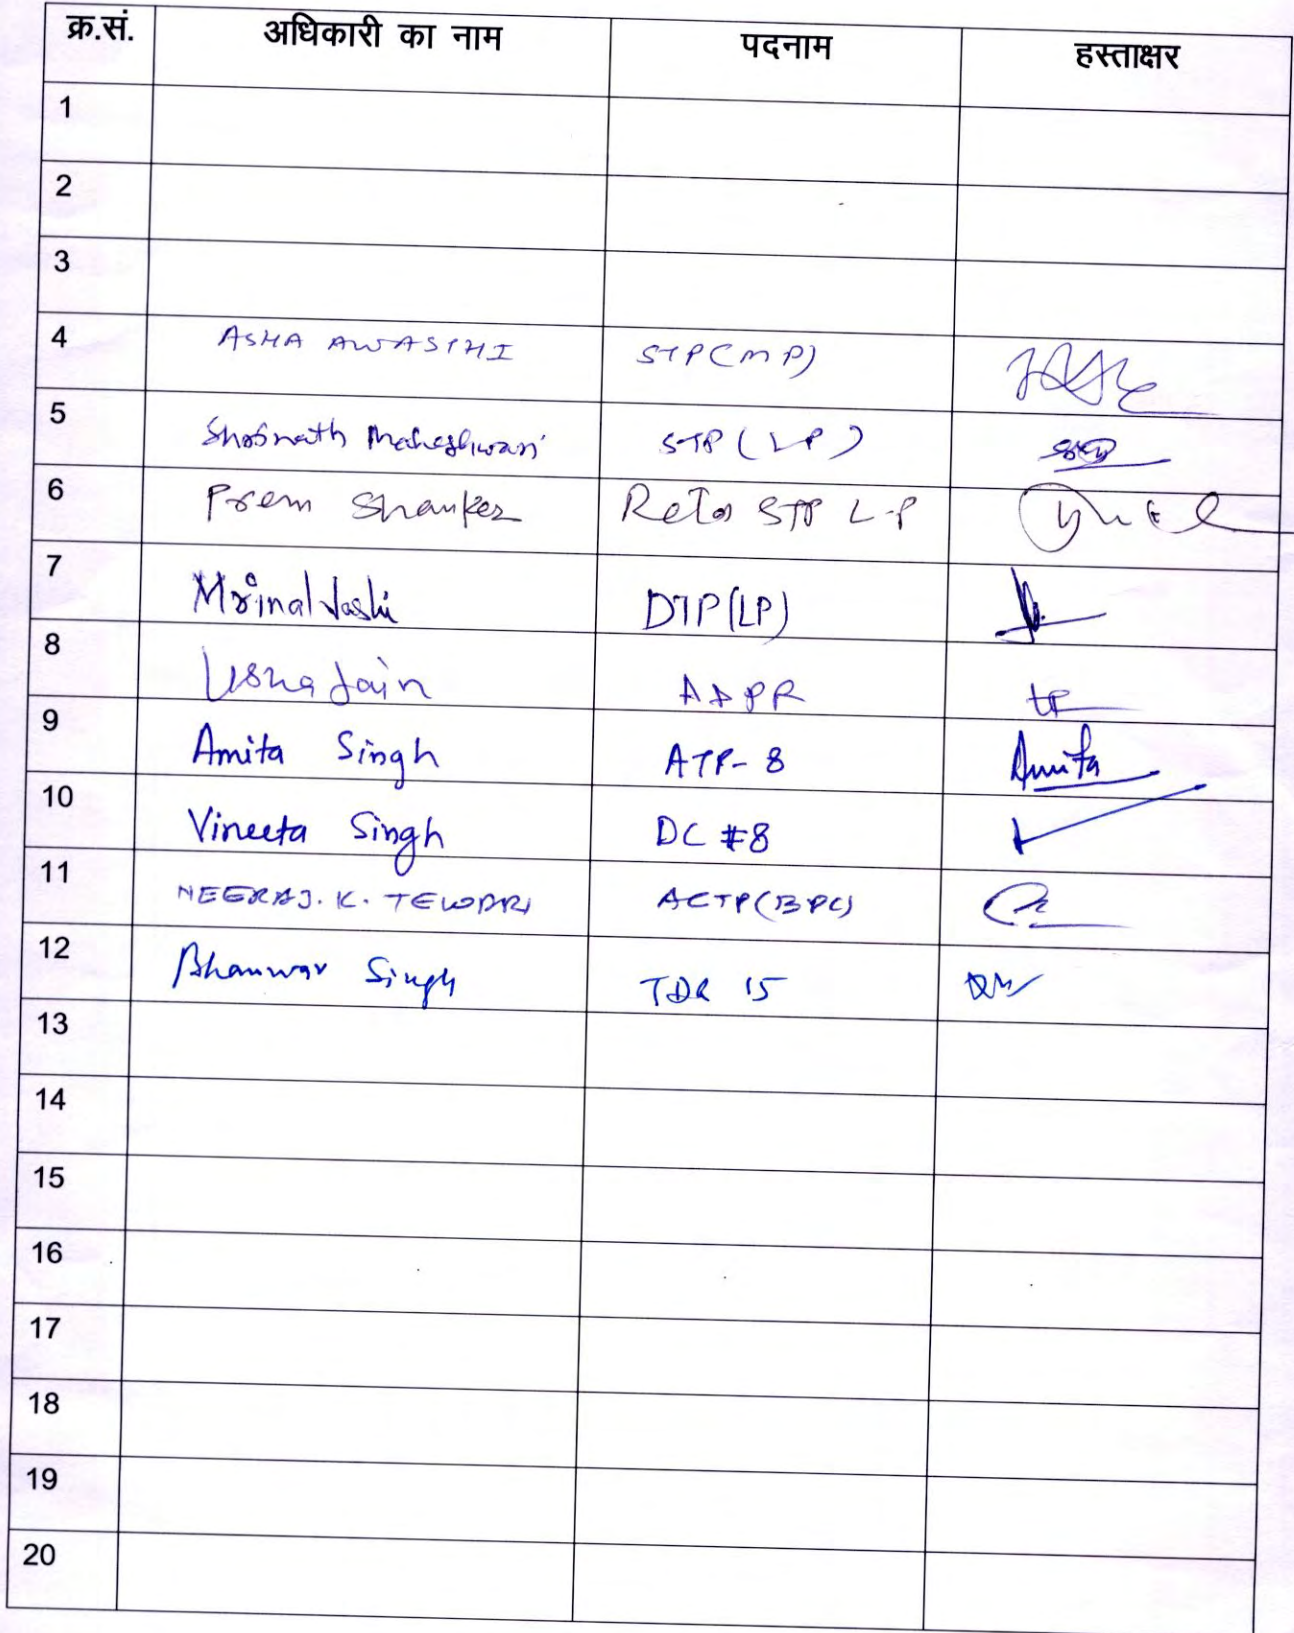 क्र.सं. अधिकारी का नाम पदनाम हस्ताक्षर
1
2
3
4 ASHA AWASTHI STP(MP)
5 Maheshwari STP (LP)
6 Prem Shanker STP L.P
7 Mrinal Joshi DTP(LP)
8 Usha Jain ADPR
9 Amita Singh ATP-8 Amita
10 Vineeta Singh DC #8
11 NEERAJ. K. TEWARI ACTP(BPC)
12 Bhanwar Singh TDR 15
13
14
15
16
17
18
19
20